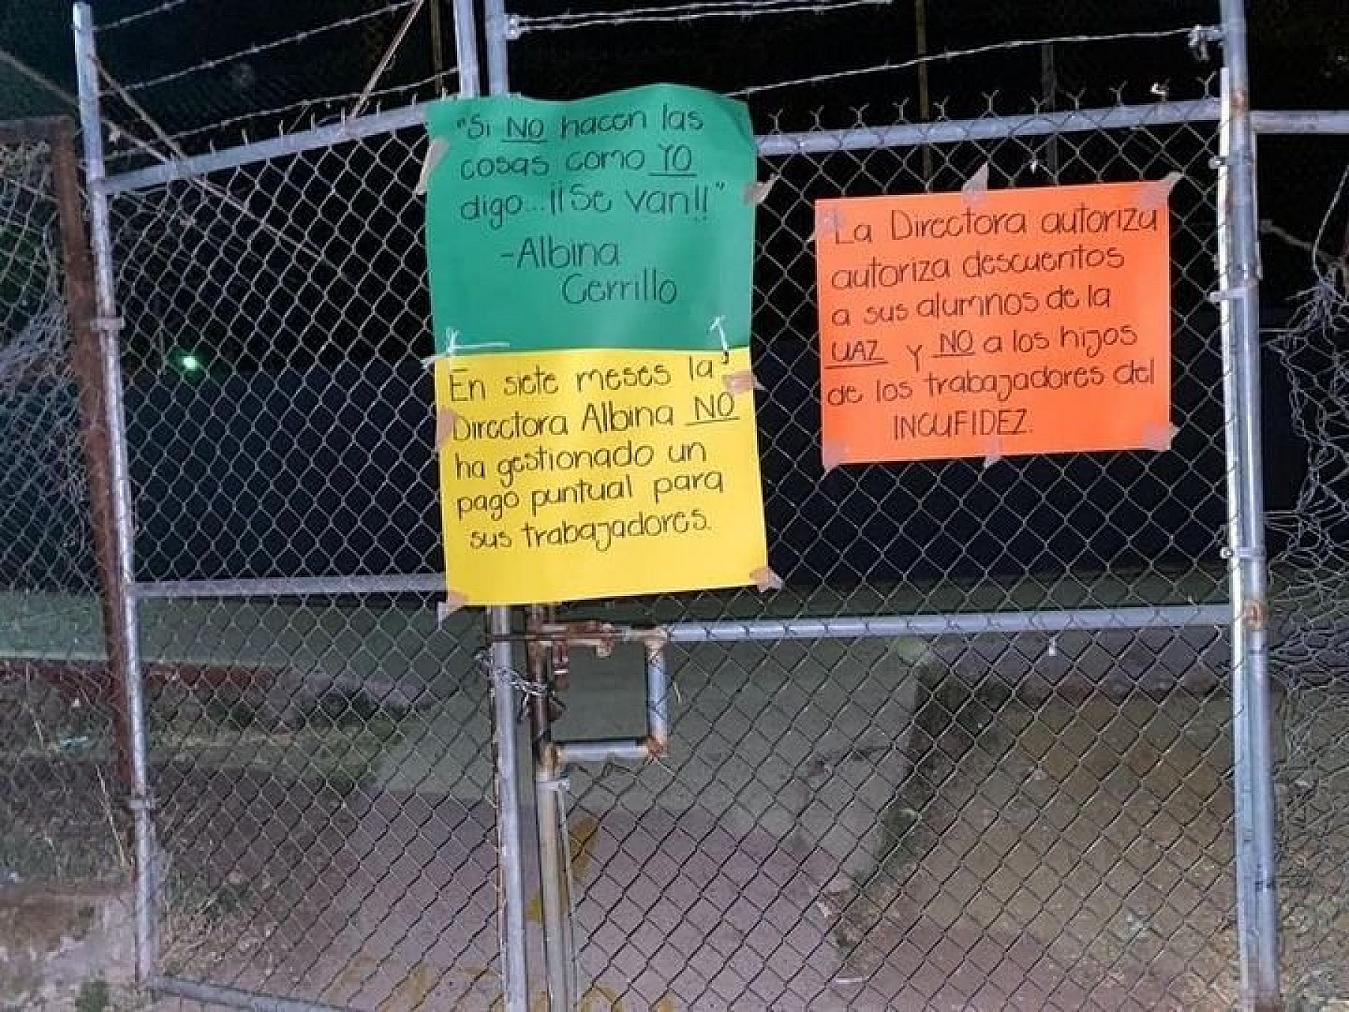 "Si NO hacen las
cosas como YO
digo...¡¡Se van!!"
-Albina
Cerrillo
En siete meses la
Directora Albina NO
ha gestionado un
pago puntual para
sus trabajadores.
La Directora autoriza
autoriza descuentos
a sus alumnos de la
UAZ y NO a los hijos
de los trabajadores del
INCUFIDEZ.